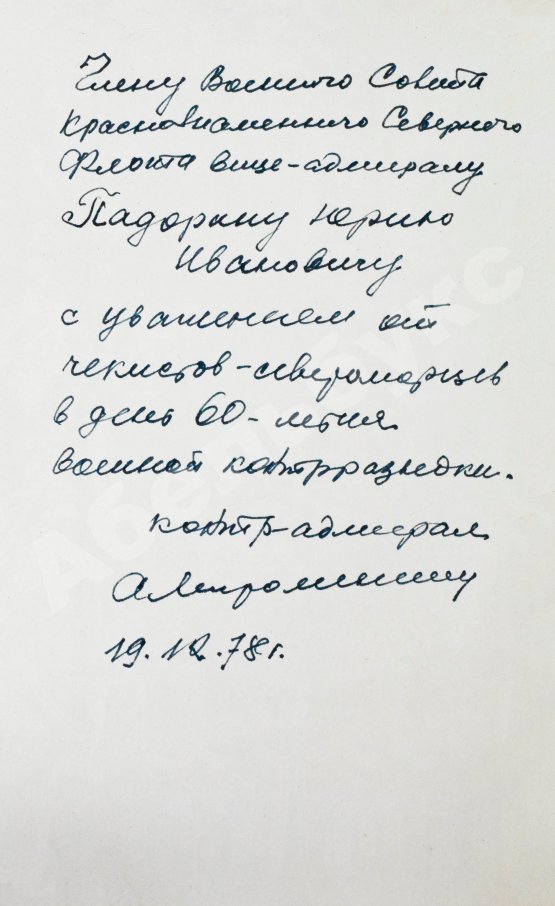 Члену Военного Совета
Краснознаменного Северного
Флота вице-адмиралу
Падорину Юрию
Ивановичу
с уважением от
чекистов-североморцев
в день 60-летия
военной контрразведки.
контр-адмирал
19.12.78 г.